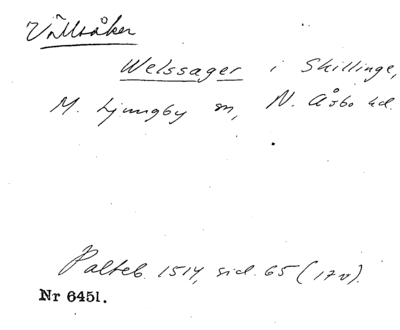 Vällsåker
Welssager i Skillinge,
M. Ljungby sn, N. Åsbo hd.
Palteb. 1514, sid. 65 (17v).
Nr 6451.